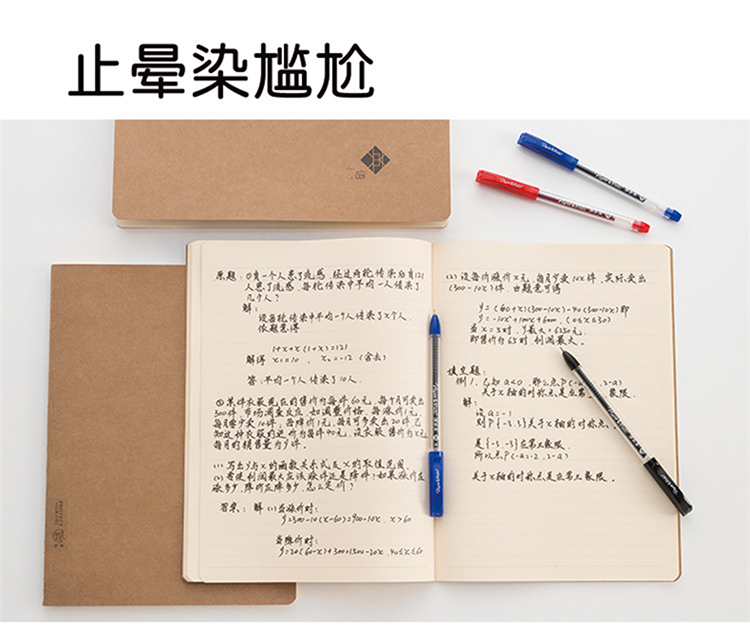 止晕染尴尬
原题：①有一个人患了流感，经过两轮传染后有121
人患了流感，每轮传染中平均一人传染了
几个人？
解：
设每轮传染中平均一个人传染了x个人.
依题意得
1+x+x(1+x)=121
解得 x₁=10 , x₂=-12 (舍去)
答:平均一个人传染了10人.
②某件衣服现在的售价为每件60元，每个月可卖出
300件，市场调查反应，如调整价格，每涨价1元，
每月要少卖10件；每降价1元，每月可多卖出20件，已
知这种衣服的进价为每件40元，设衣服售价为x元
每月的销售量为y件.
(1) 写出y与x的函数关系式及x的取值范围.
(2) 若使利润最大应该涨价还是降价？如果涨价应
涨多少，降价应降多少，怎么定价？
答案：解 (1) 当涨价时:
y=300-10(x-60)=900-10x , x>60
当降价时:
y=20(60-x)+300=1500-20x , 40≤x≤60
(2) 设每价涨价x元，每月少卖10x件，实际卖出
(300-10x)件，由题意可得
y=(60+x)(300-10x)-40(300-10x)即
y=-10x²+100x+6000 , (0≤x≤30)
当x=5时，y最大=6250元.
即售价为65时，利润最大.
填空题：
例1. 已知a<0，那么点P(-a-2, 2-a)
关于x轴的对称点是在第 象限.
解：
设a=-1
则P{-3,3}关于x轴的对称点
是{-3,-3}在第三象限.
所以点P(-a-2, 2-a)
关于x轴的对称点是在第三象限.